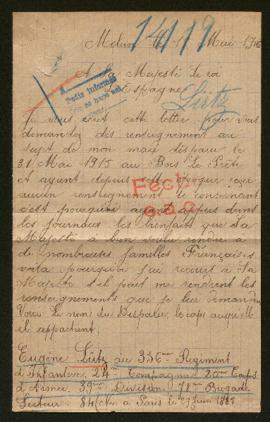 14119
Melun Mai 1916
A Sa Majesté le roi
d'Espagne
Lutz
Je vous écrit cette lettre pour vous
demander des renseignement au
sujet de mon mari disparu le
31 Mai 1915 au Bois le Prêtre
et ayant depuis cet époque reçu
aucun renseignement le concernant
Fech
c'est pourquoi ayant appris dans
les journaux les bienfaits que sa
Majesté a bien voulu rendre à
de nombreuses familles Français
voila pourquoi j'ai recours à Sa
Majesté s'il peut me rendre les
renseignements que je lui demande
Voici le nom du Disparu, le corps auquel
il appartient
Eugène Lutz au 356me Regiment
d'Infanterie 24me Compagnie 20me Corps
d'Armée 39me Division 78me Brigade
Secteur 84 Né à Paris le 29 Juin